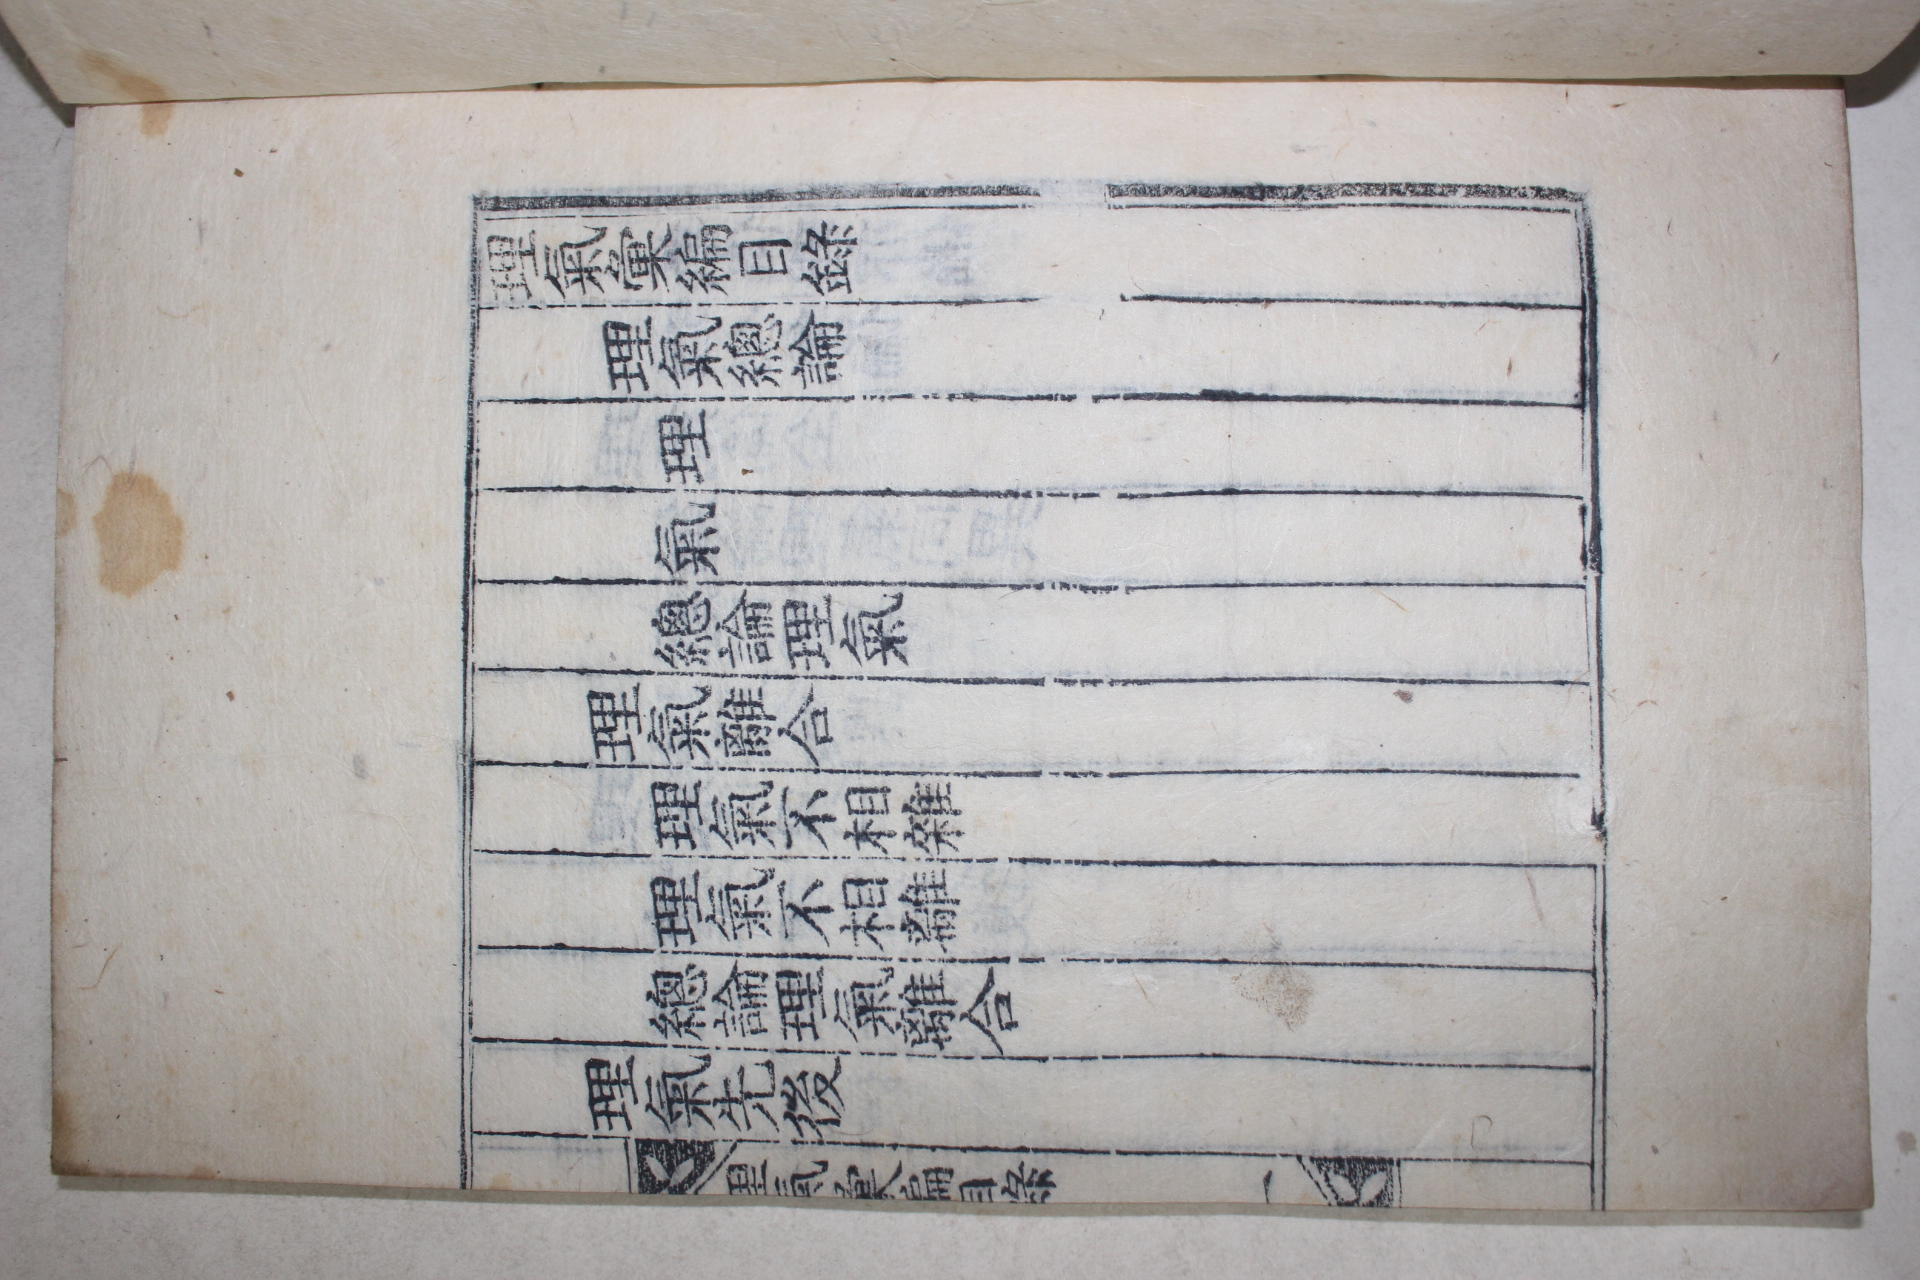 理氣彙編目錄
理氣總論
理
氣
總論理氣
理氣離合
理氣不相雜
理氣不相離
總論理氣離合
理氣先後
理氣彙編目錄 一